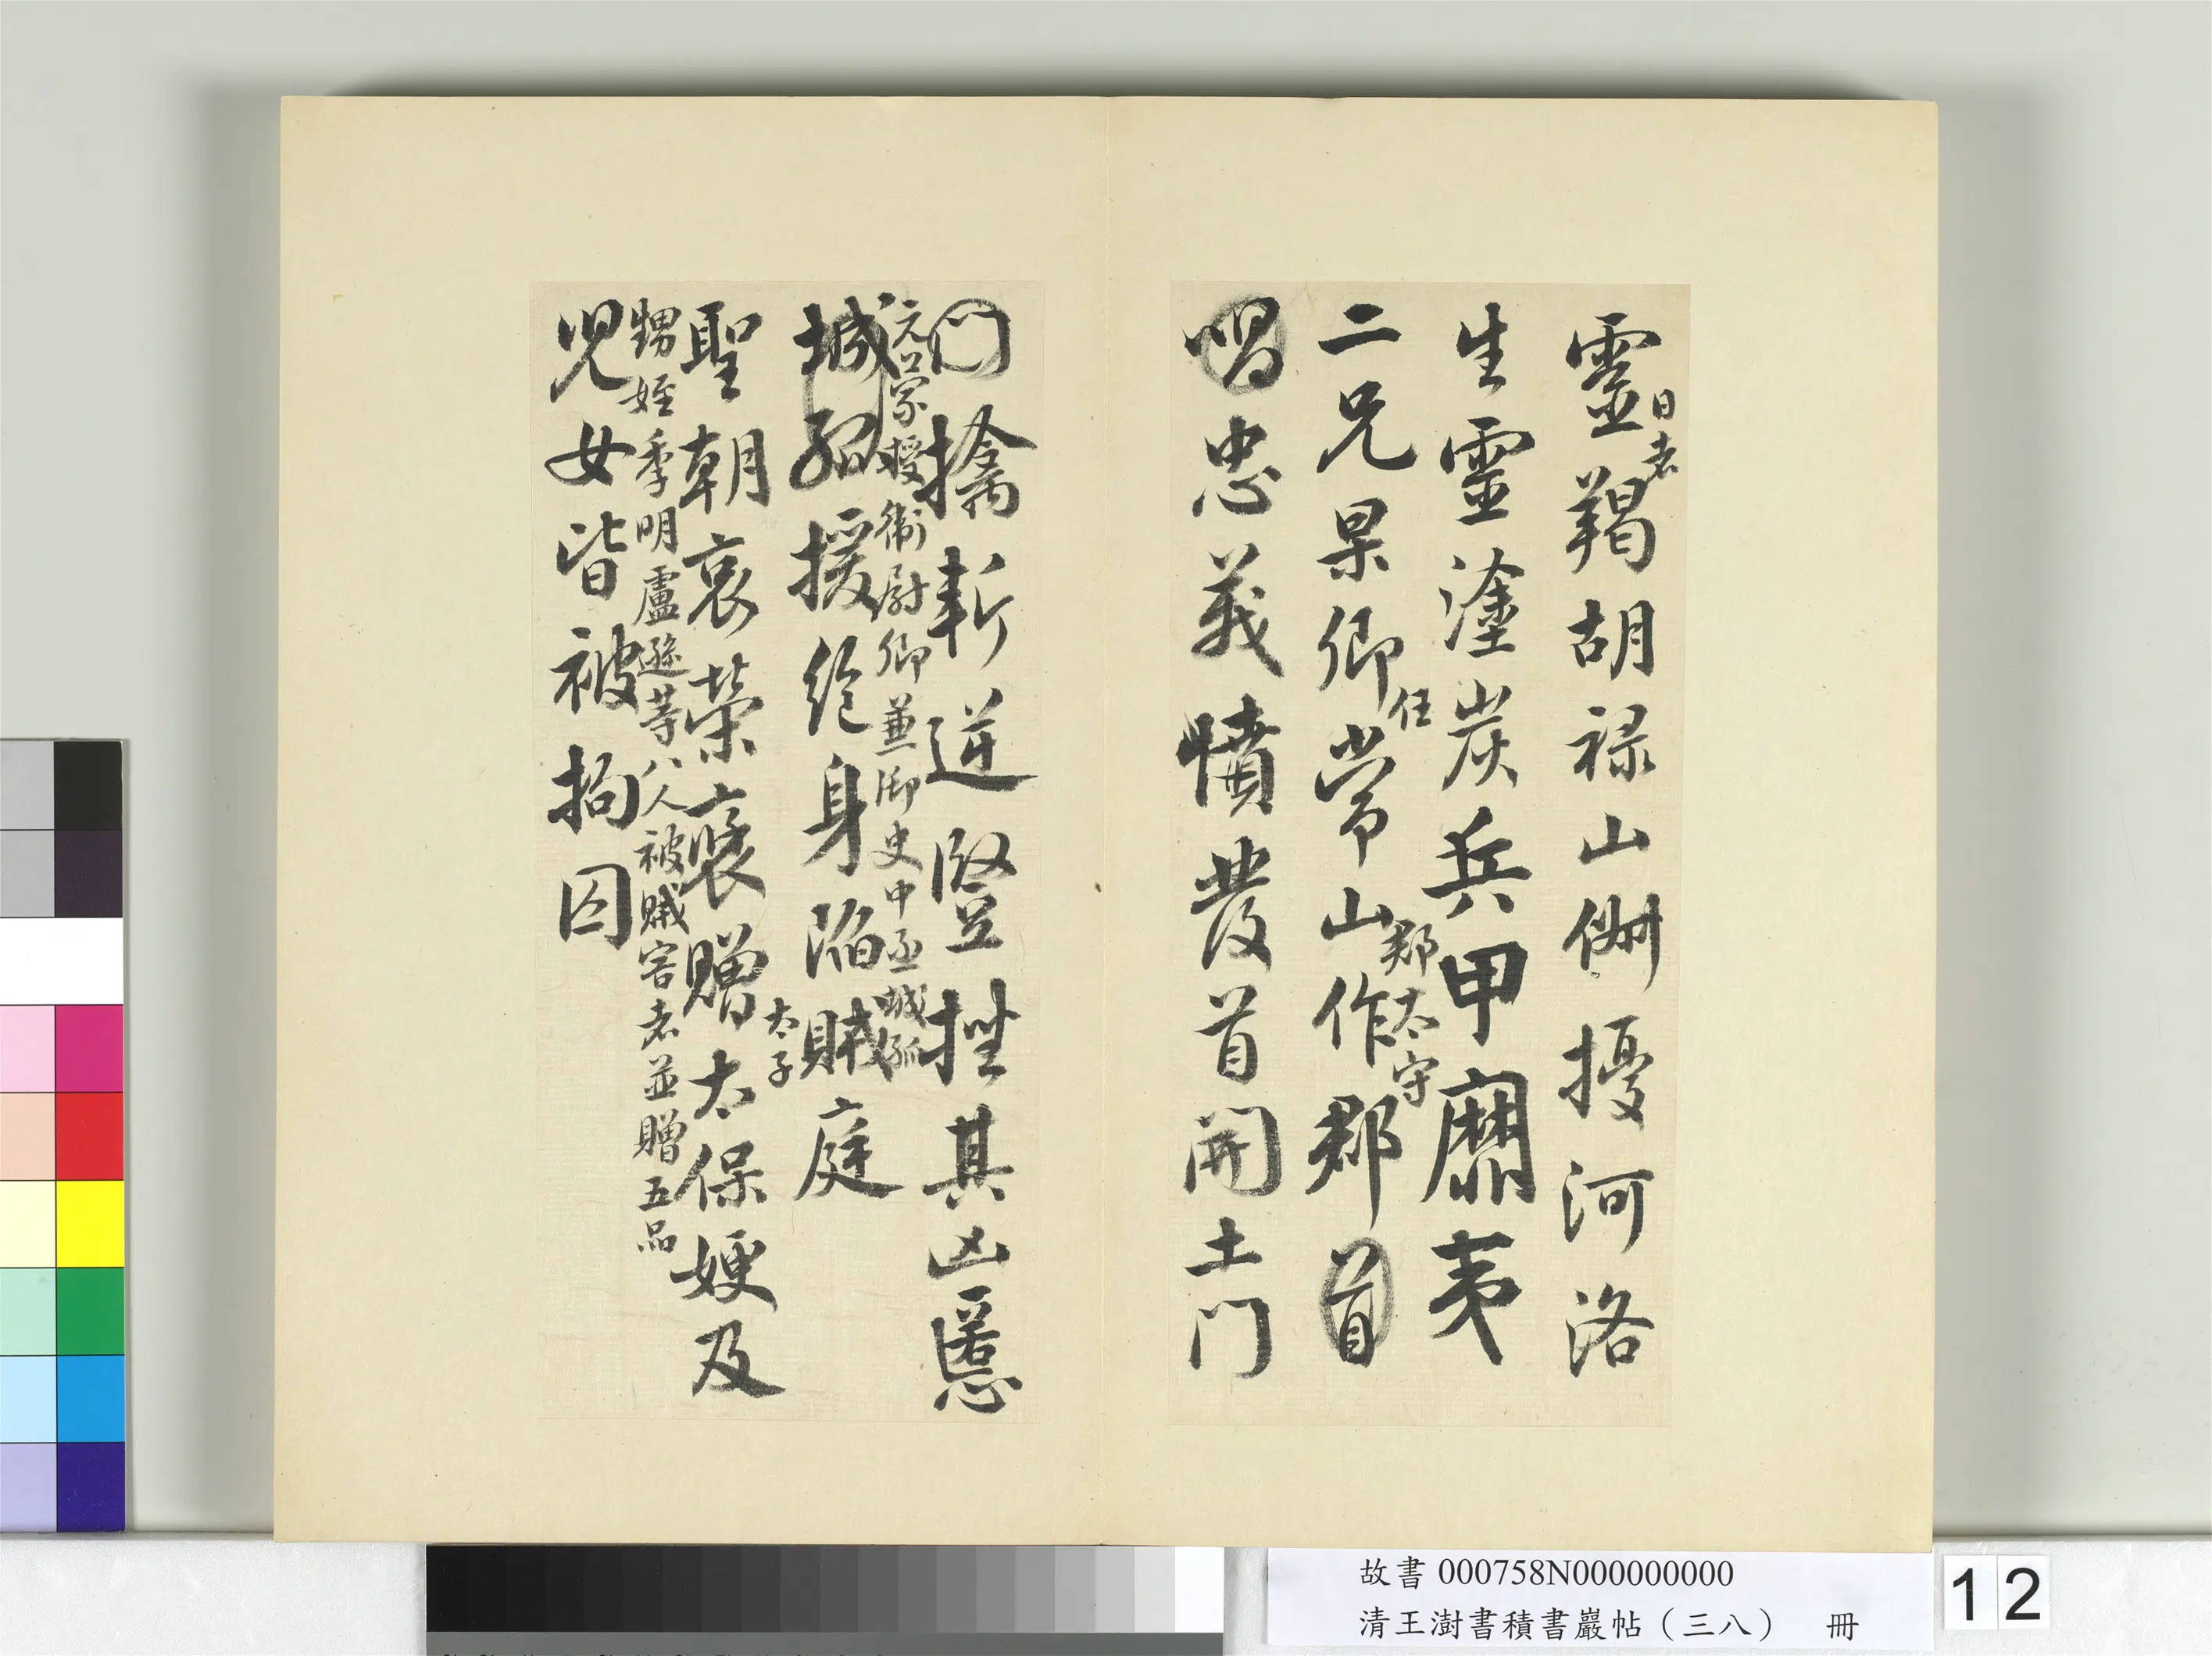 靈羯胡祿山俶擾河洛
日者
生靈塗炭兵甲靡夷
二兄杲卿常山作郡首
任
郡太守
唱忠義憤發首開土門
門擒斬逆豎挫其凶慝
元宗授衛尉卿兼御史中丞城孤
城孤援絕身陷賊庭
聖朝哀榮褒贈太保嫂及
太子
甥姪季明盧逖等八人被賊害者並贈五品
兒女皆被拘囚
故書 000758N000000000
清王澍書積書巖帖（三八） 冊
12